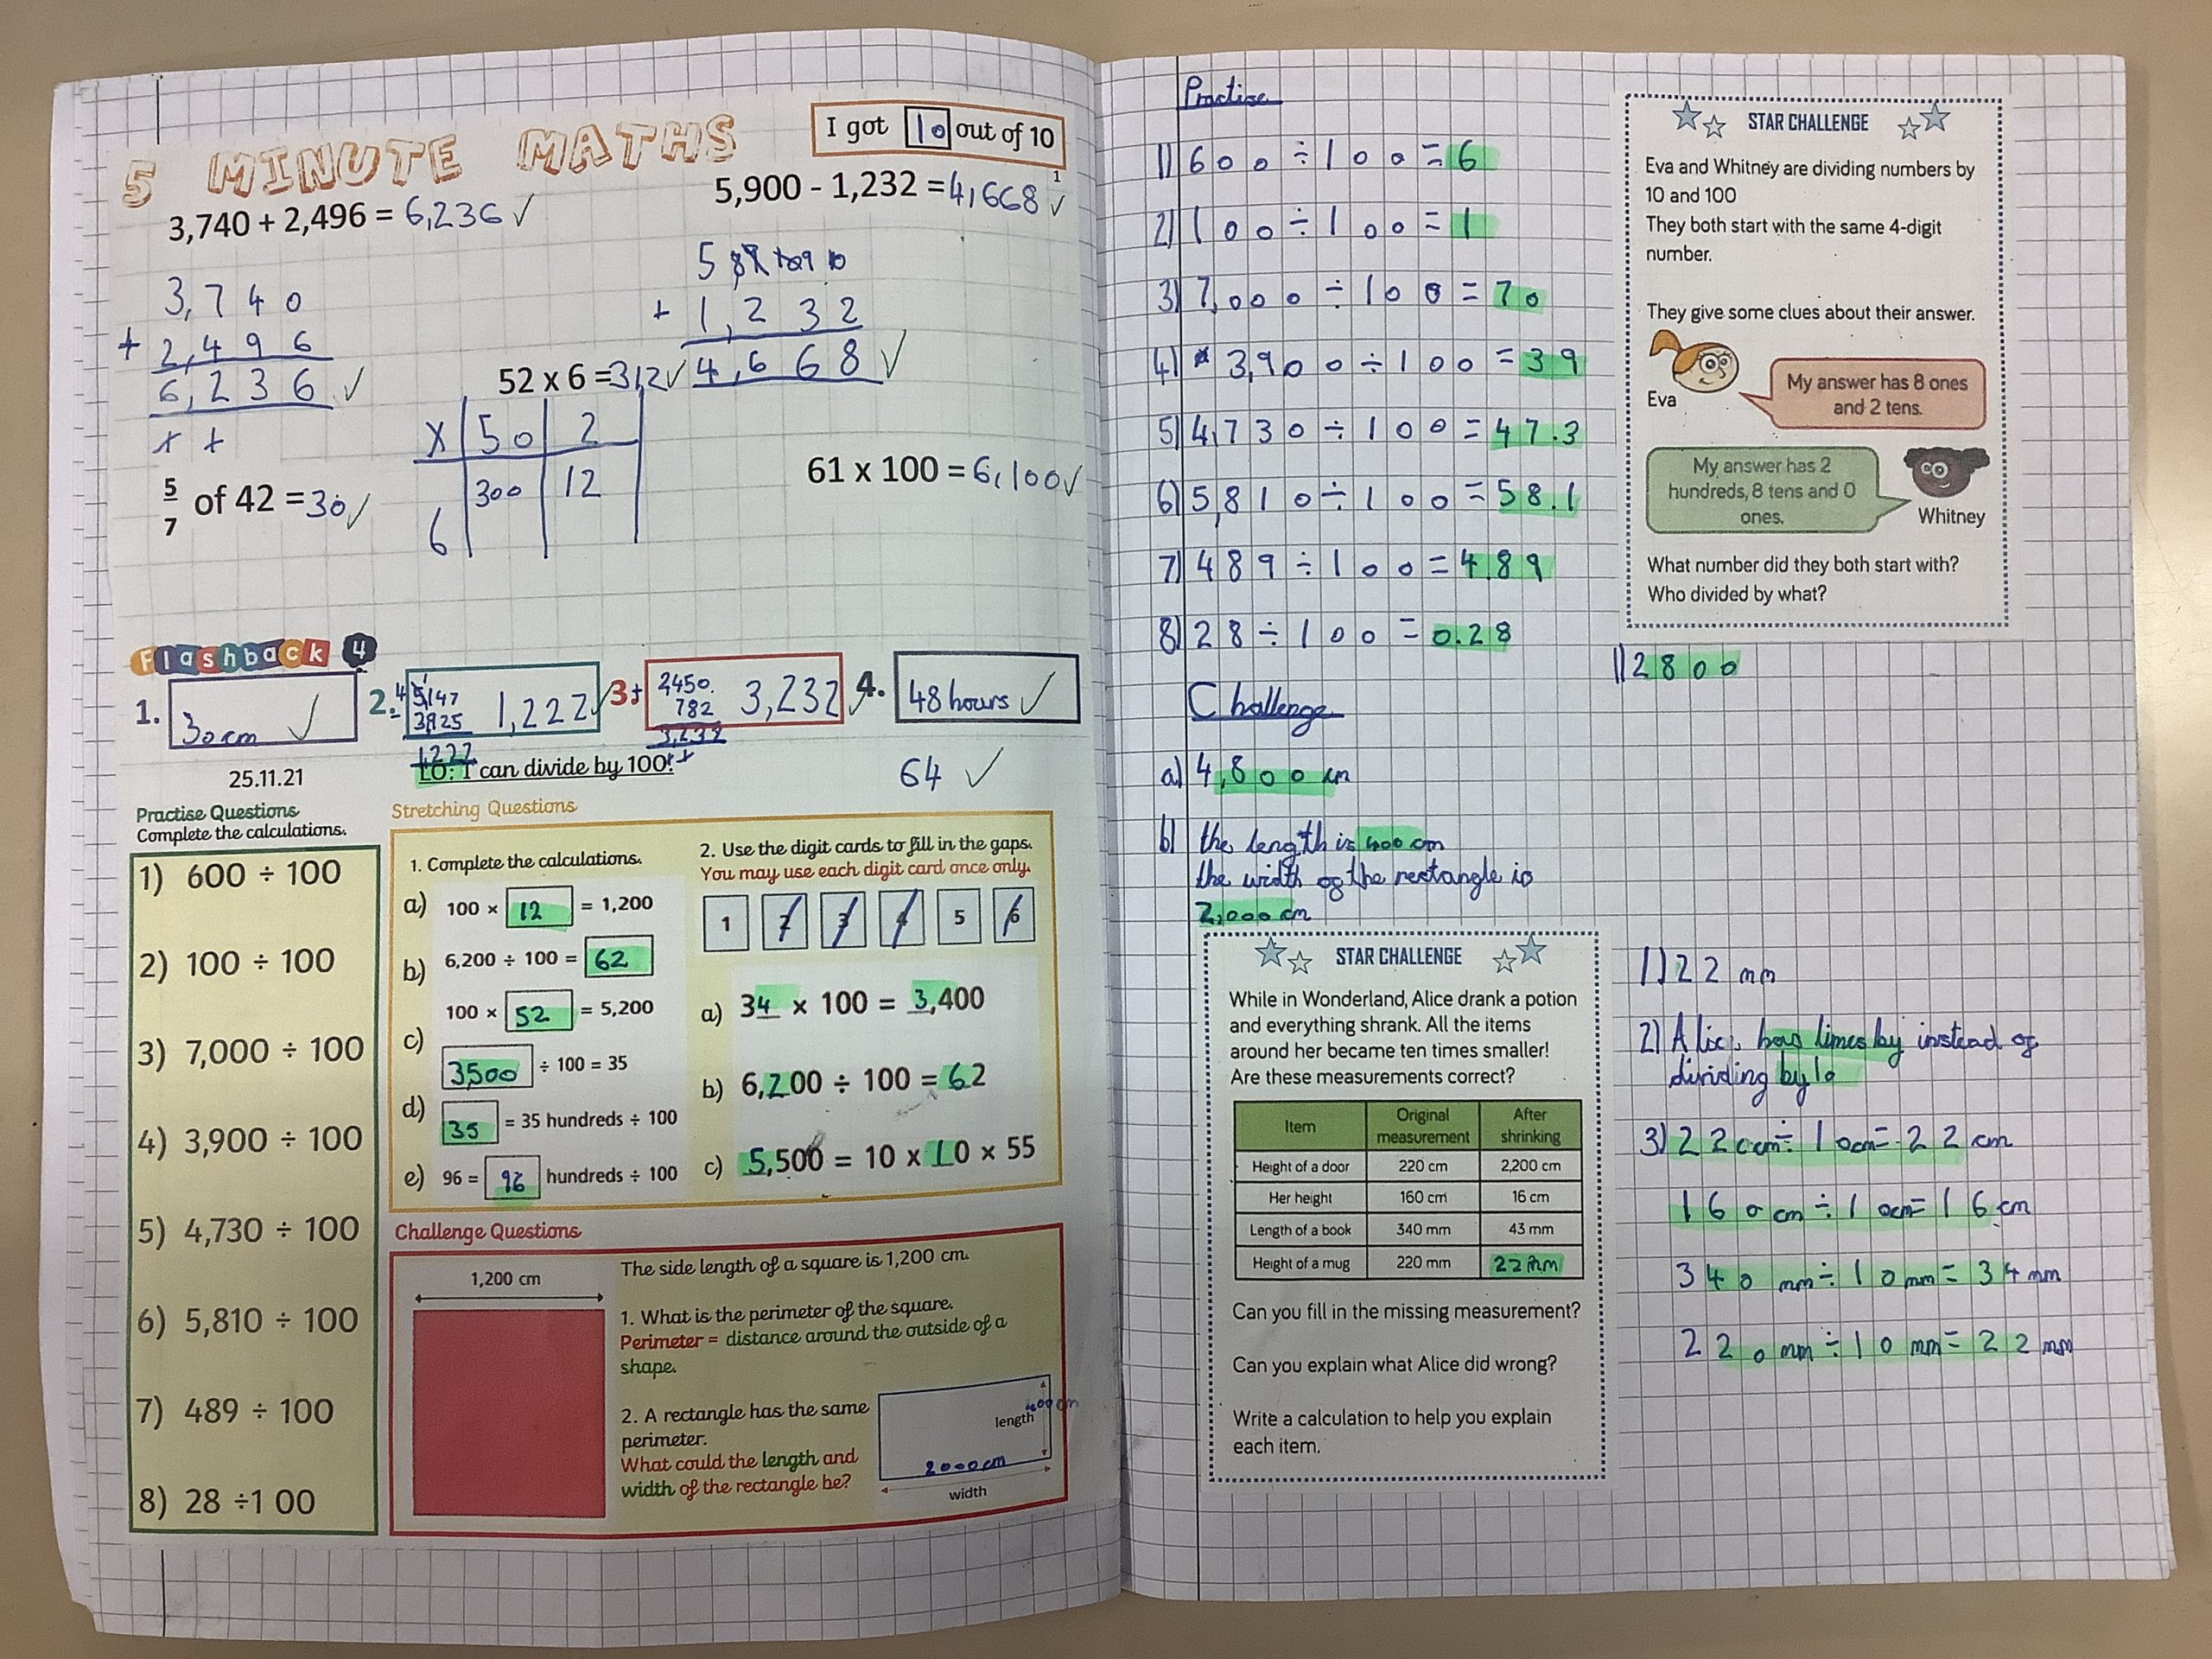 5 MINUTE MATHS
I got 10 out of 10
3,740 + 2,496 = 6,236 ✓
5,900 - 1,232 = 4,668 ✓
1
3,740
+ 2,496
6,236 ✓
+ 1,232
4,668 ✓
52 x 6 = 312 ✓
X 50 2
6 300 12
5/7 of 42 = 30 ✓
61 x 100 = 6,100 ✓
Flashback 4
1. 30cm ✓
2. 1,222 ✓
- 3925
1222
3. + 2450.
782
3,232
3,232 ✓
4. 48 hours ✓
64 ✓
25.11.21
LO: I can divide by 100.
Practise Questions
Complete the calculations.
1) 600 ÷ 100
2) 100 ÷ 100
3) 7,000 ÷ 100
4) 3,900 ÷ 100
5) 4,730 ÷ 100
6) 5,810 ÷ 100
7) 489 ÷ 100
8) 28 ÷1 00
Stretching Questions
1. Complete the calculations.
a) 100 × 12 = 1,200
b) 6,200 ÷ 100 = 62
100 × 52 = 5,200
c)
3500 ÷ 100 = 35
d) 35 = 35 hundreds ÷ 100
e) 96 = 96 hundreds ÷ 100
2. Use the digit cards to fill in the gaps.
You may use each digit card once only.
1 2 3 4 5 6
a) 34 × 100 = 3,400
b) 6,200 ÷ 100 = 62
c) 5,500 = 10 × 10 × 55
Challenge Questions
1,200 cm
The side length of a square is 1,200 cm.
1. What is the perimeter of the square.
Perimeter = distance around the outside of a
shape.
2. A rectangle has the same
perimeter.
What could the length and
width of the rectangle be?
400 cm
length
2000cm
width
Practise
1) 600 ÷ 100 = 6
2) 100 ÷ 100 = 1
3) 7,000 ÷ 100 = 70
4) 3,900 ÷ 100 = 39
5) 4,730 ÷ 100 = 47.3
6) 5,810 ÷ 100 = 58.1
7) 489 ÷ 100 = 4.89
8) 28 ÷ 100 = 0.28
Challenge
a) 4,800 cm
b) the length is 400 cm
the width of the rectangle is
2,000 cm
STAR CHALLENGE
Eva and Whitney are dividing numbers by
10 and 100
They both start with the same 4-digit
number.
They give some clues about their answer.
Eva
My answer has 8 ones
and 2 tens.
My answer has 2
hundreds, 8 tens and 0
ones.
Whitney
What number did they both start with?
Who divided by what?
1) 2800
STAR CHALLENGE
While in Wonderland, Alice drank a potion
and everything shrank. All the items
around her became ten times smaller!
Are these measurements correct?
Item Original measurement After shrinking
Height of a door 220 cm 2,200 cm
Her height 160 cm 16 cm
Length of a book 340 mm 43 mm
Height of a mug 220 mm 22mm
Can you fill in the missing measurement?
Can you explain what Alice did wrong?
Write a calculation to help you explain
each item.
1) 22 mm
2) Alice has times by instead of
dividing by 10
3) 220cm ÷ 10cm = 22 cm
160cm ÷ 10cm = 16 cm
340 mm ÷ 10mm = 34mm
220mm ÷ 10 mm = 22 mm